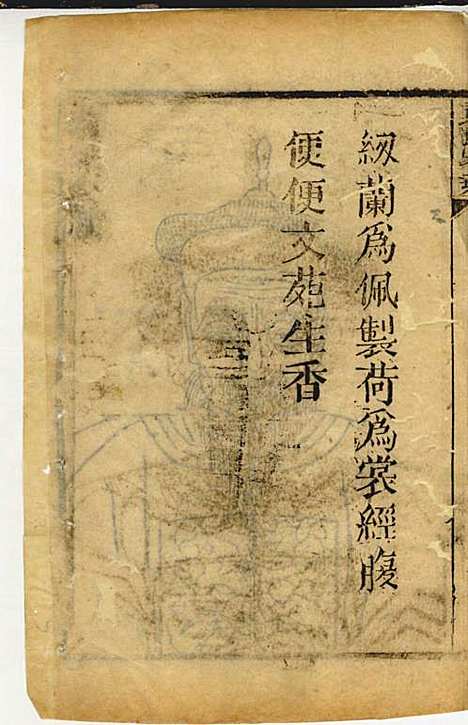 紉蘭為佩製荷為裳經腹
便便文苑生香